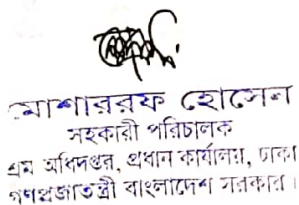 মোশাররফ হোসেন
সহকারী পরিচালক
শ্রম অধিদপ্তর, প্রধান কার্যালয়, ঢাকা
গণপ্রজাতন্ত্রী বাংলাদেশ সরকার।